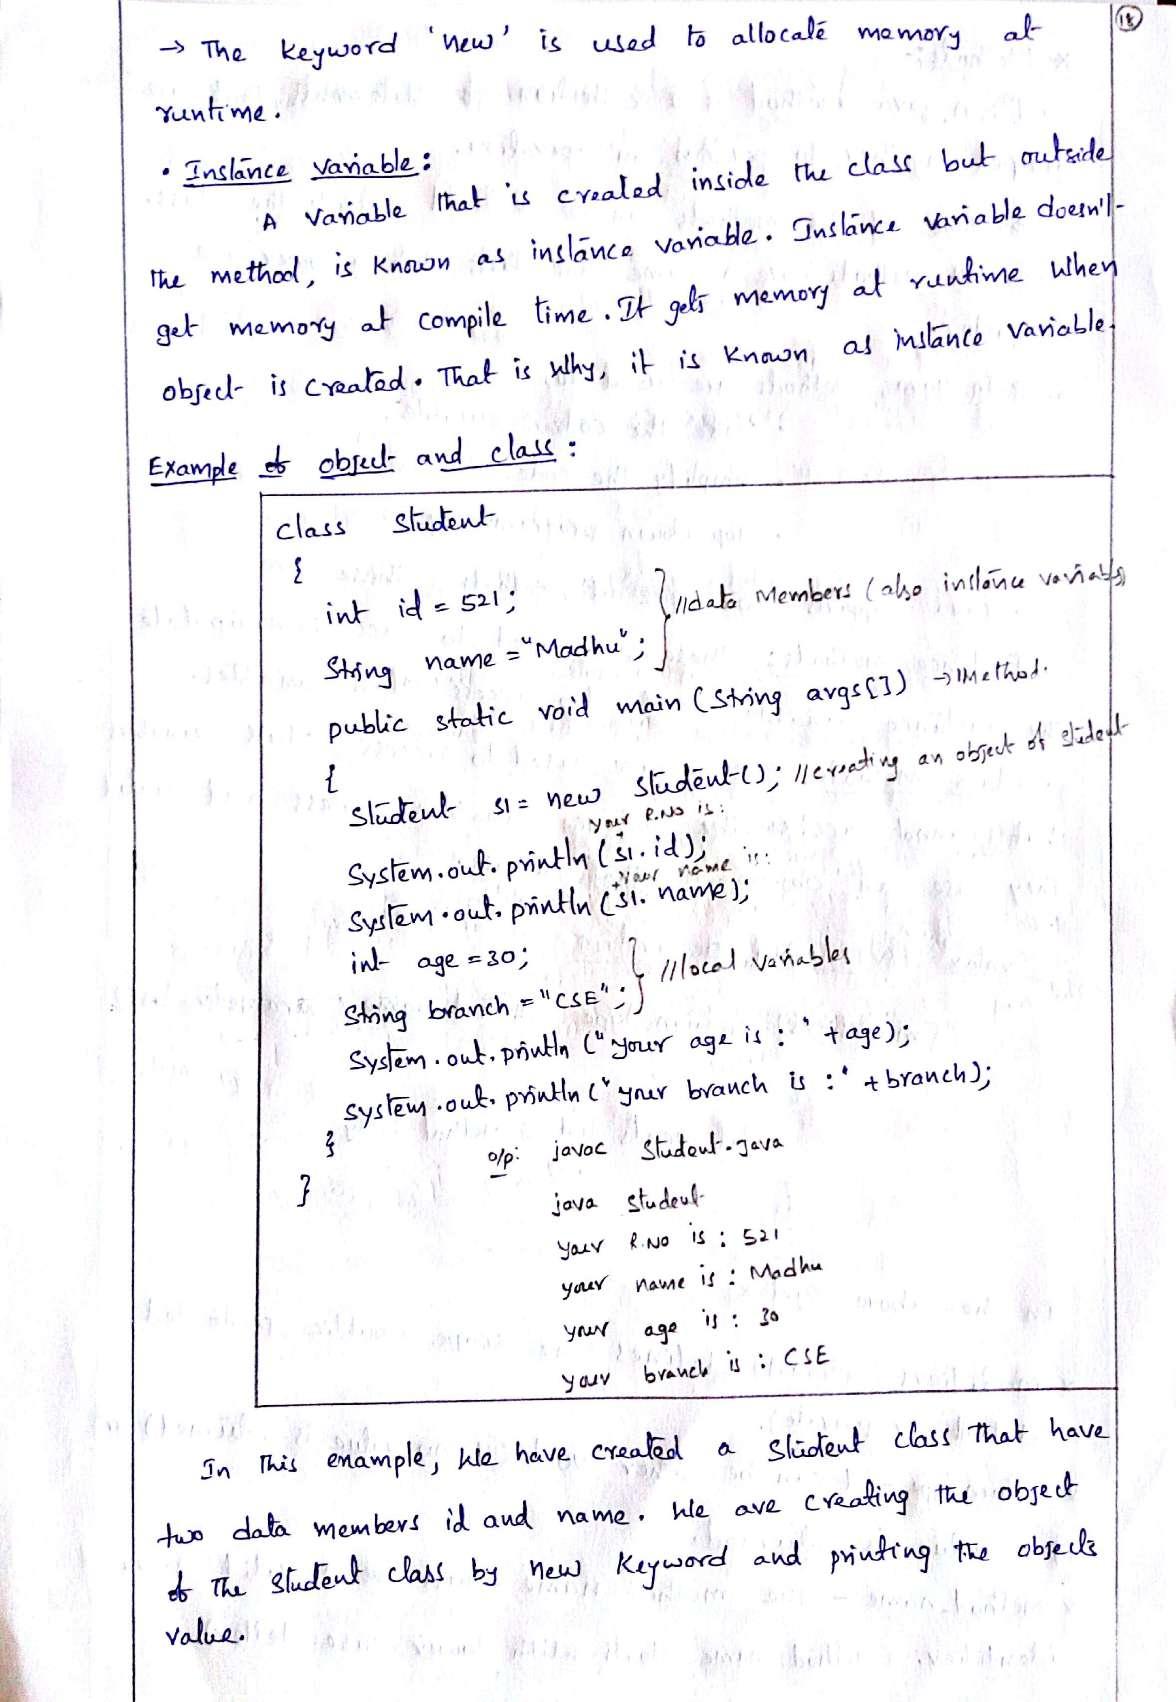 18
→ The keyword 'new' is used to allocate memory at
runtime.
• Instance variable:
A variable that is created inside the class but outside
the method, is known as instance variable. Instance variable doesn't
get memory at compile time. It gets memory at runtime when
object is created. That is why, it is known as instance variable.
Example of object and class:
class Student
{
int id = 521;
String name = "Madhu"; } //data Members (also instance variables)
public static void main (String args[]) → Method.
{
Student s1 = new Student(); //creating an object of student
your R.No is:
System.out.println (+s1.id);
your name is:
System.out.println (+s1.name);
int age = 30;
String branch = "CSE"; } //local variables
System.out.println ("your age is : " + age);
System.out.println ("your branch is : " + branch);
}
o/p: javac Student.java
}
java Student
your R.No is : 521
your name is : Madhu
your age is : 30
your branch is : CSE
In this example, We have created a Student class that have
two data members id and name. We are creating the object
of the Student class by new keyword and printing the objects
value.